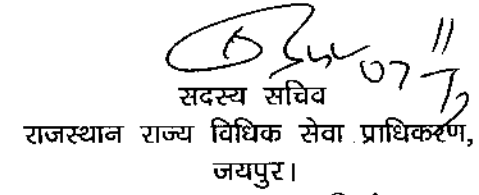 सदस्य सचिव
राजस्थान राज्य विधिक सेवा प्राधिकरण,
जयपुर।